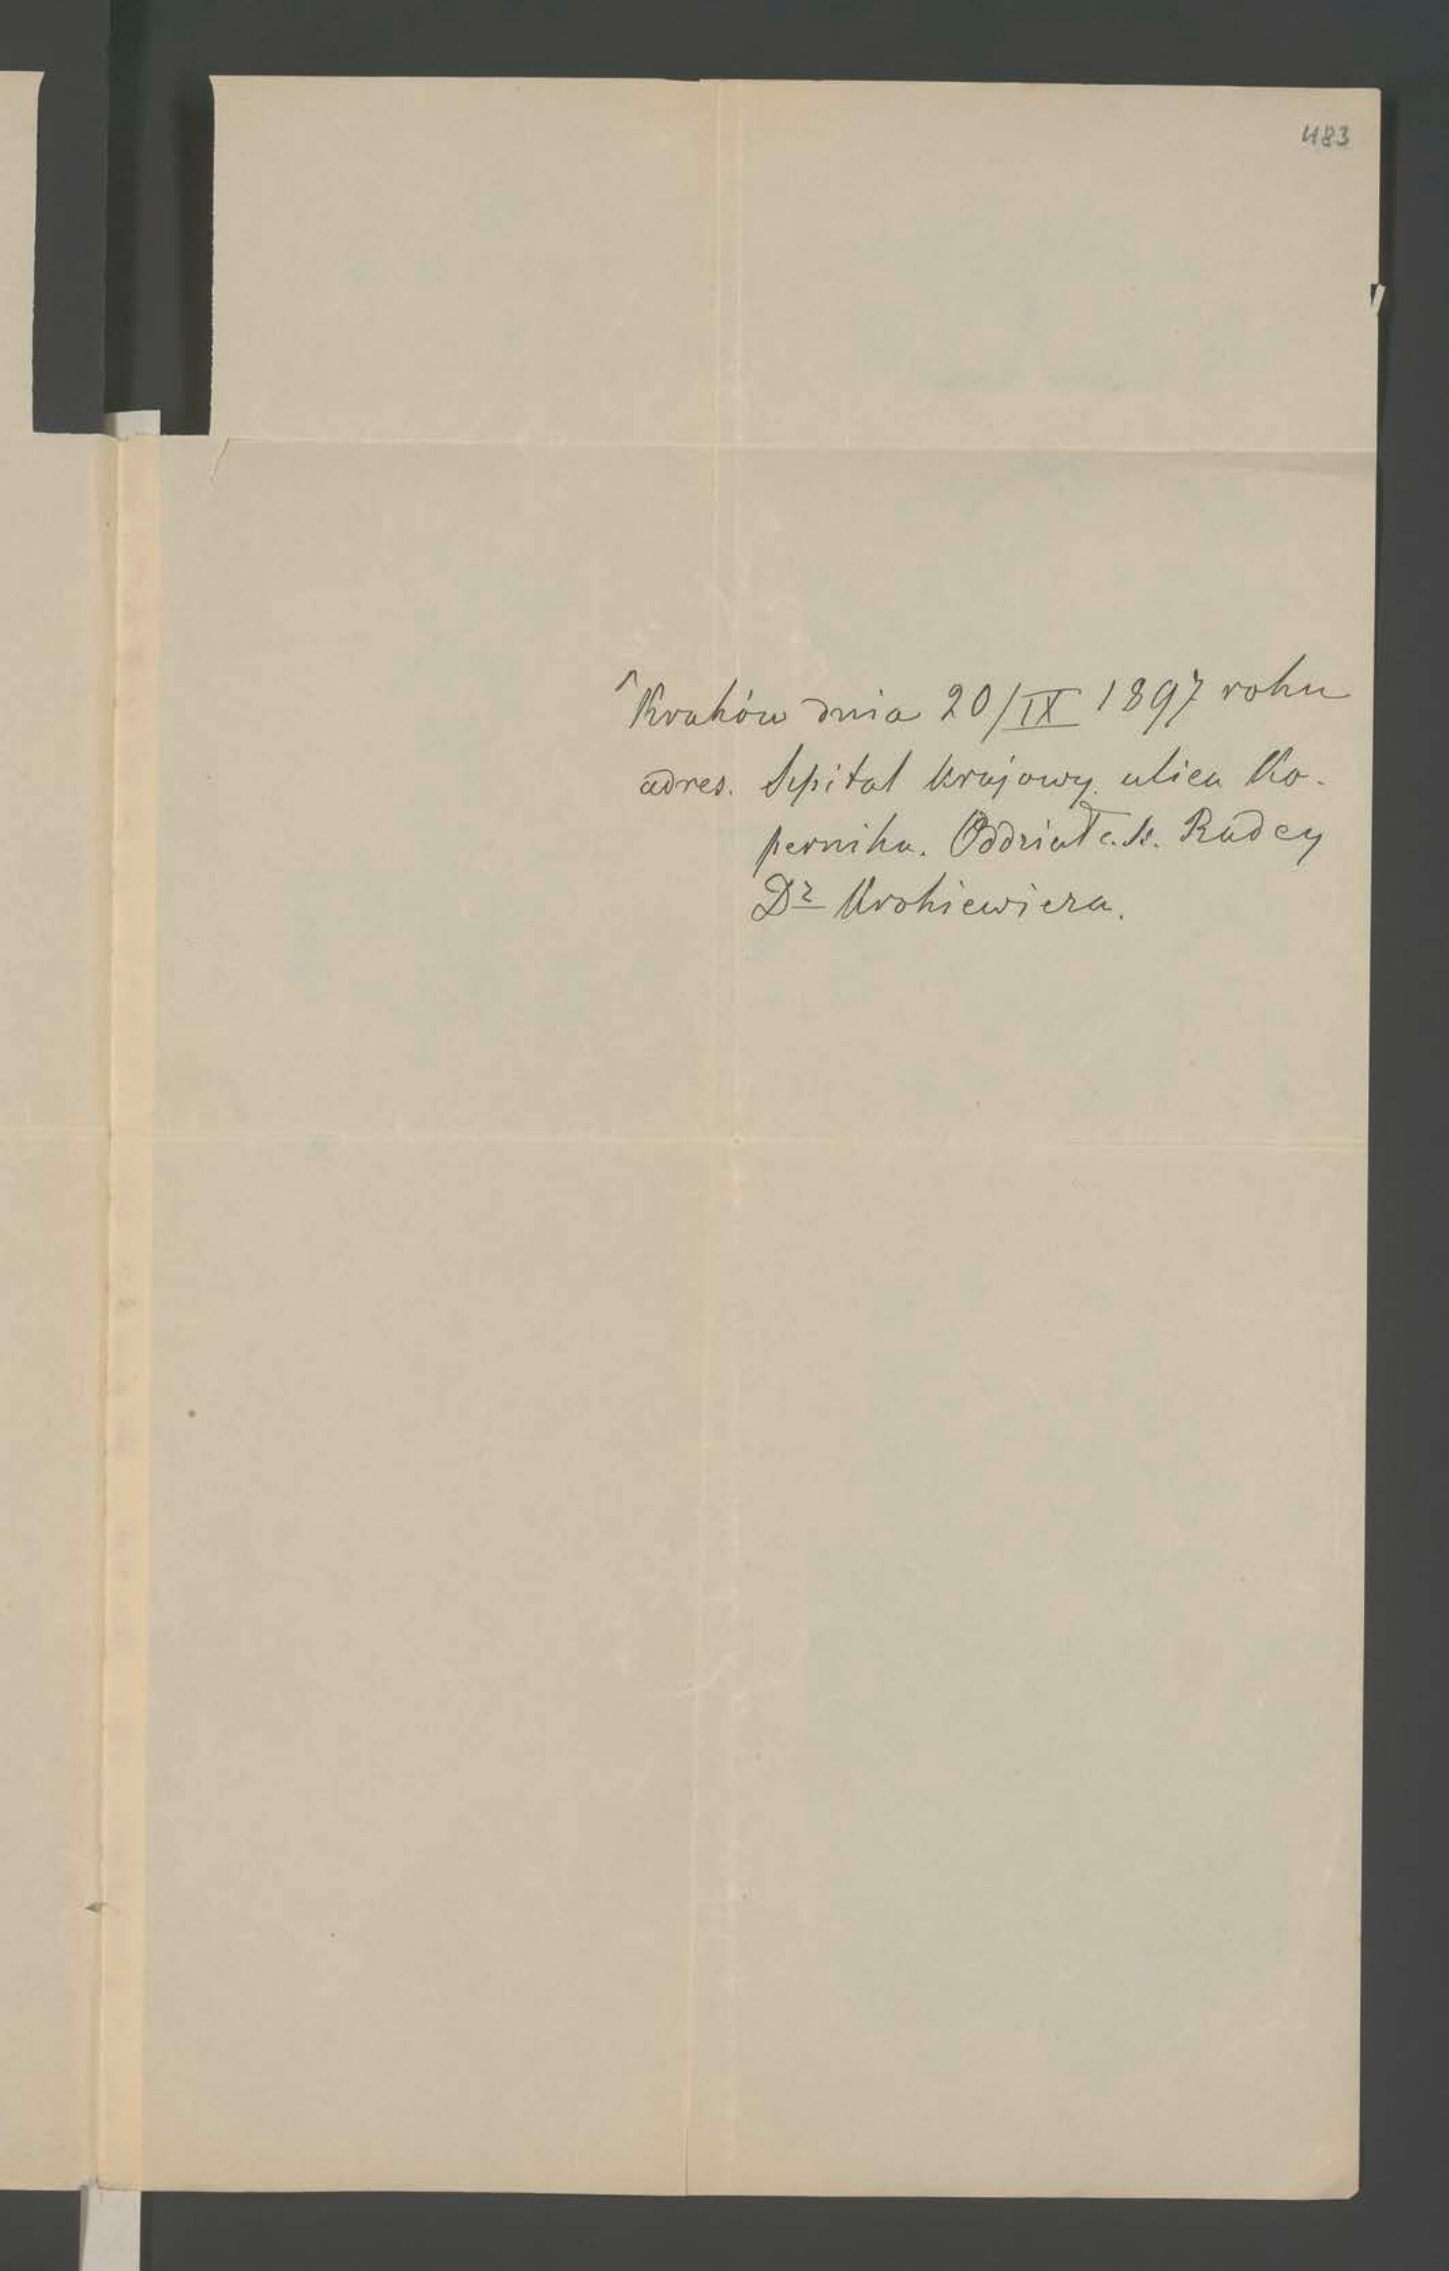 483
Kraków dnia 20/IX 1897 roku
adres. Szpital krajowy. ulica Ko-
pernika. Oddział c. k. Radcy
Dr Krokiewicza.